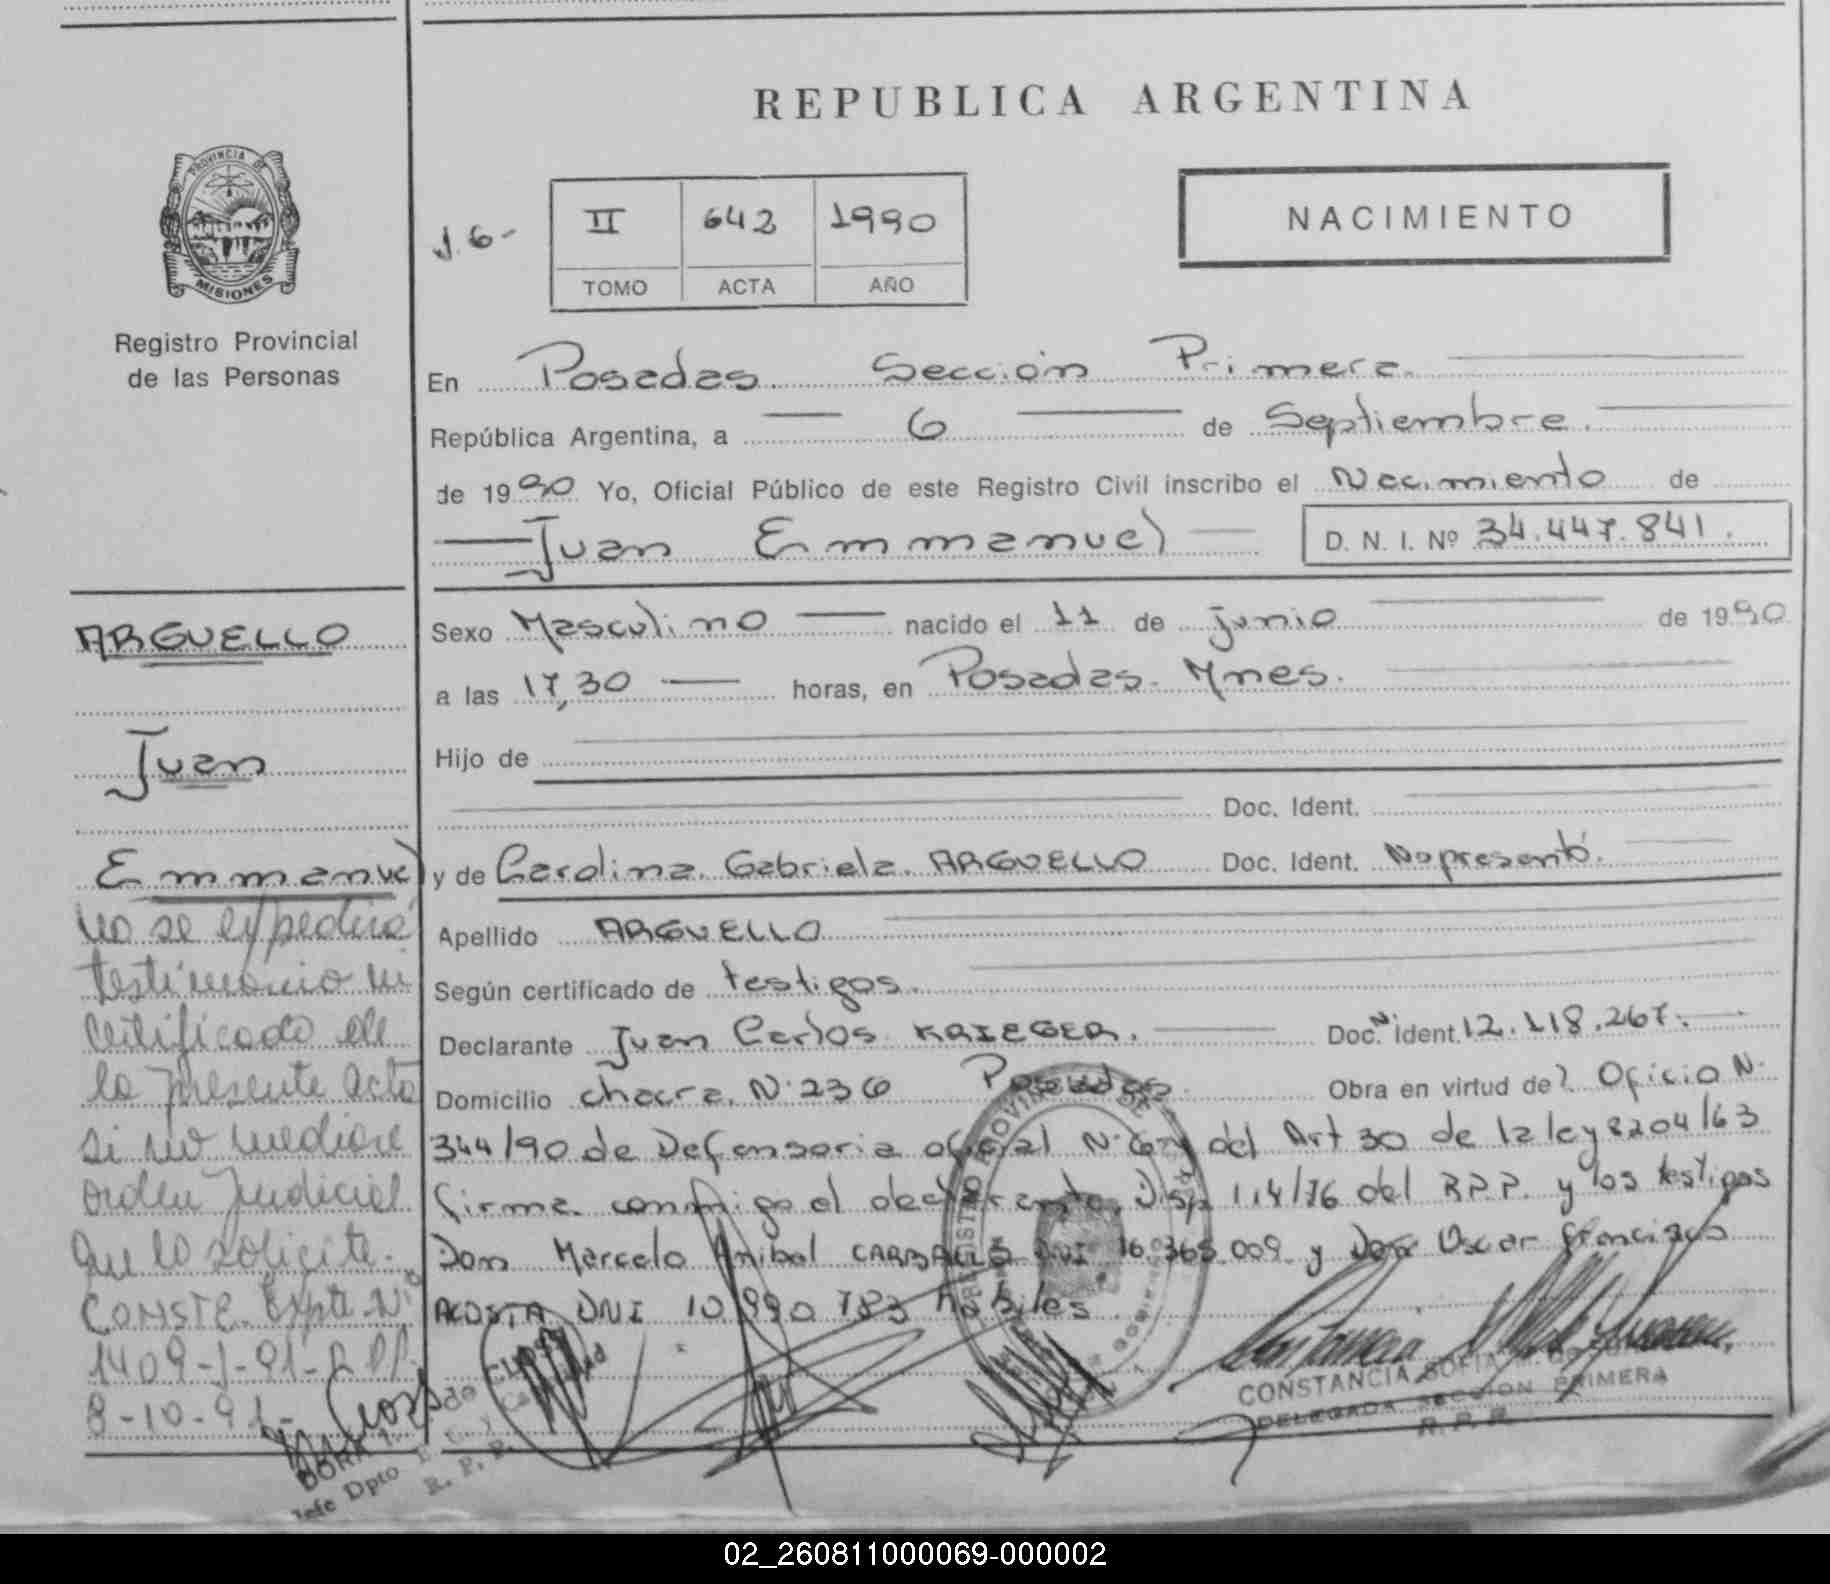 REPUBLICA ARGENTINA
PROVINCIA DE
MISIONES
Registro Provincial
de las Personas
J.6-
II 642 1990
TOMO ACTA AÑO
NACIMIENTO
En Posadas Sección Primera.
República Argentina, a 6 de Septiembre.
de 1990 Yo, Oficial Público de este Registro Civil inscribo el Nacimiento de
Juan Emmanuel D. N. I. Nº 34.447.841.
ARGUELLO
Juan
Emmanuel
Sexo Masculino nacido el 11 de junio de 1990
a las 17,30 horas, en Posadas. Mnes.
Hijo de
Doc. Ident.
y de Carolina. Gabriela. ARGUELLO Doc. Ident. No presentó.
Apellido ARGUELLO
Según certificado de testigos.
Declarante Juan Carlos KRIEGER. Doc. Ident. 12.118.267.
Domicilio chacra. N. 236 Posadas Obra en virtud de Oficio N.
344/90 de Defensoria oficial N. 6 y del Art 30 de la ley 8204/63
firma conmigo el declarante. Disp 114/76 del R.P.P. y los testigos
Don Marcelo Anibal CARBALLO DNI 16.365.009 y Don Oscar francisco
ACOSTA DNI 10.990.783 habiles.
No se expedirá
testimonio ni
certificado de
la presente acta
si no mediare
orden judicial
que lo solicite.
CONSTE. Expte. Nº
1409-J-91-
8-10-91-
DORA
Jefe Dpto
R. P. P.
REGISTRO PROVINCIAL DE
CONSTANCIA SOFIA
DELEGADA SECCION PRIMERA
R. P. P.
02_260811000069-000002